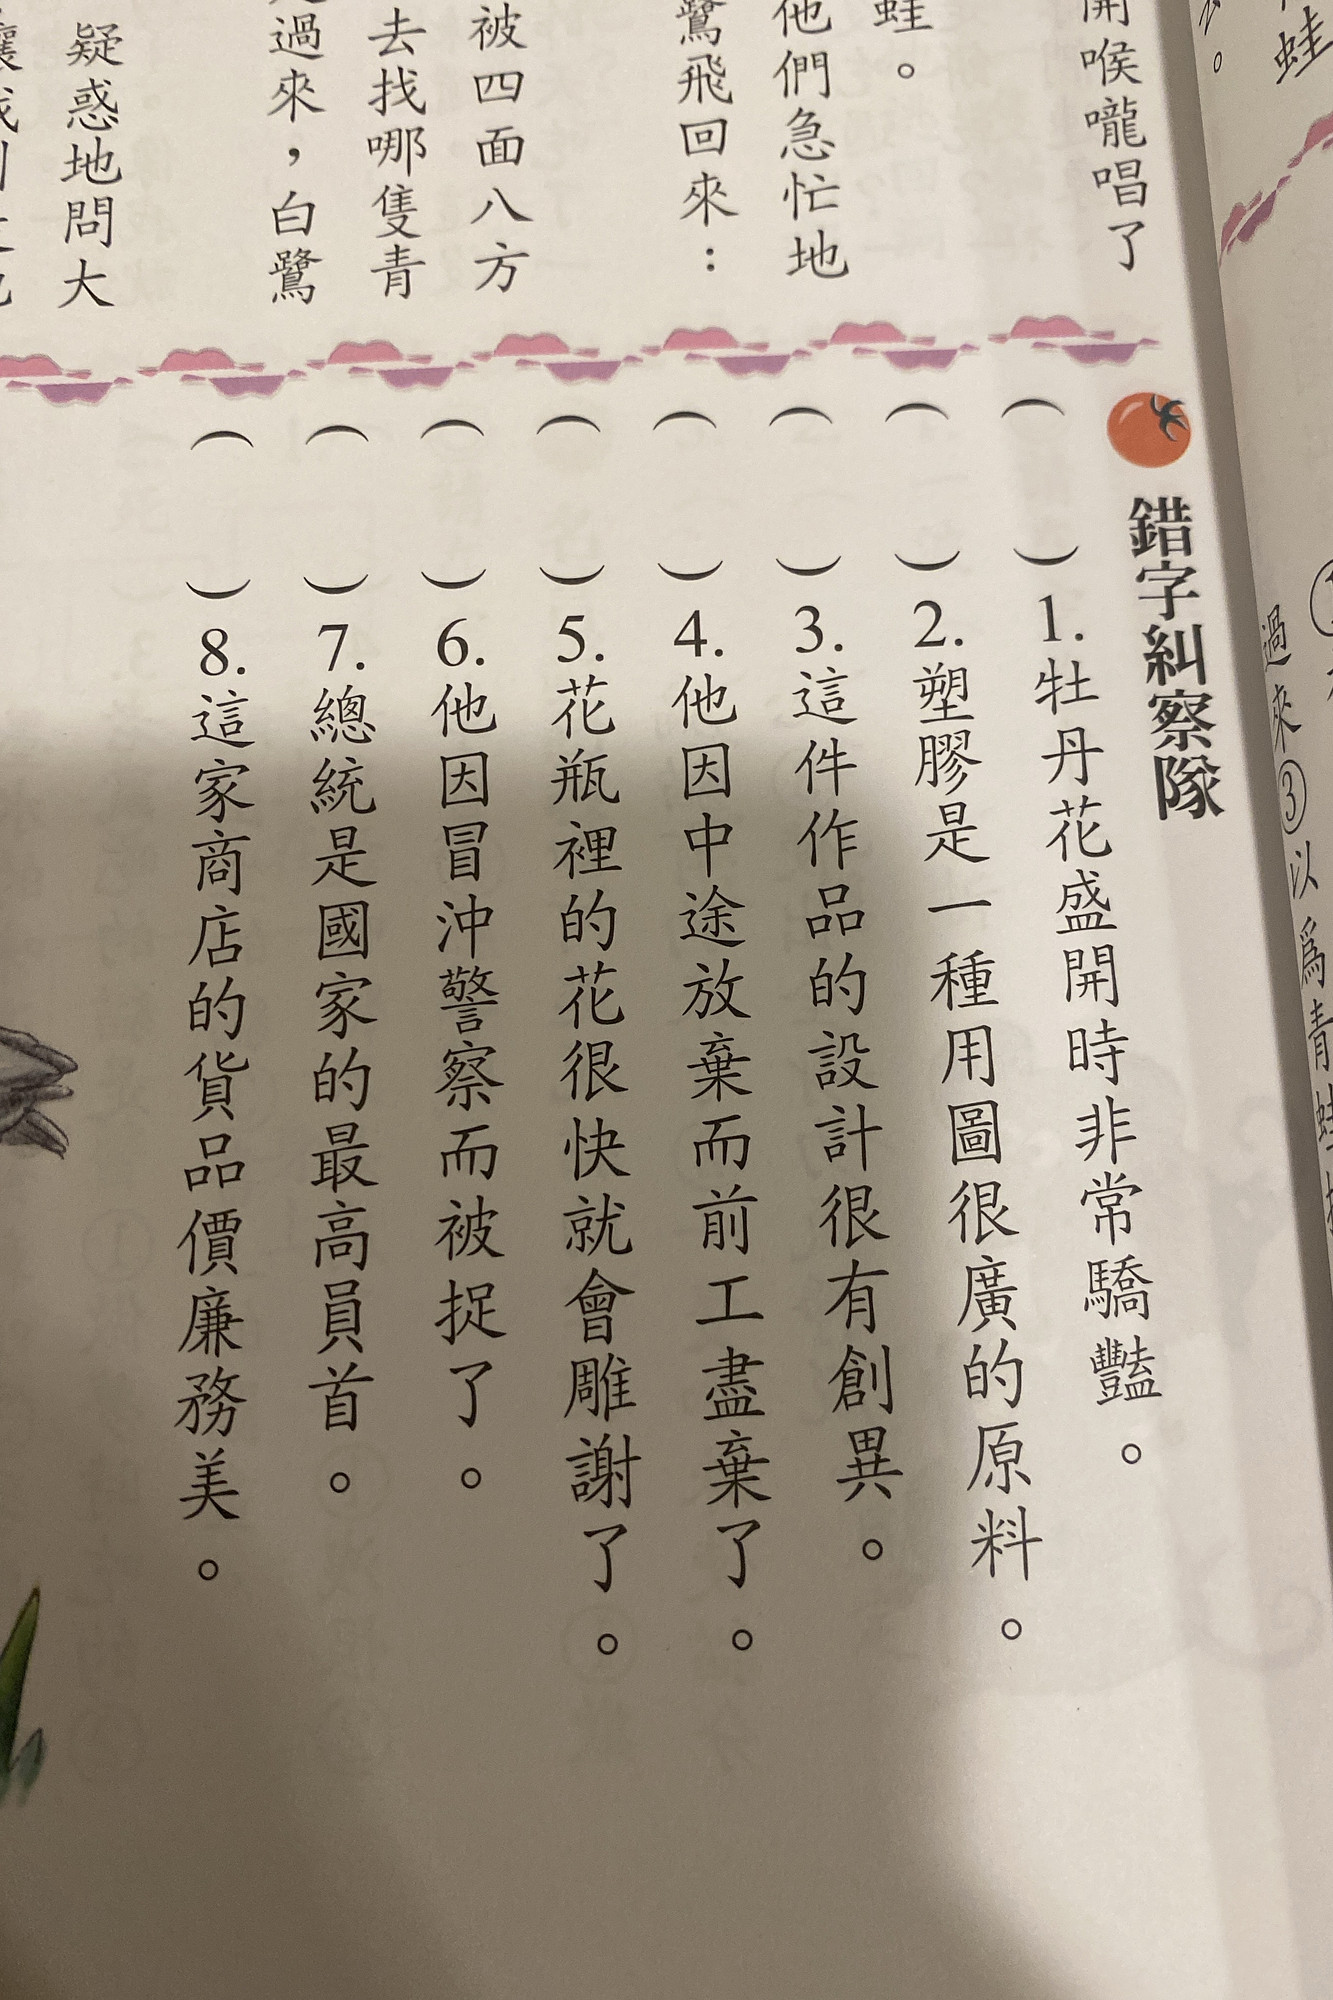 蛙
過來③以為青蛙
開喉嚨唱了
蛙。
他們急忙地
鷺飛回來：
被四面八方
去找哪隻青
過來，白鷺
疑惑地問大
錯字糾察隊
（　）1.牡丹花盛開時非常驕豔。
（　）2.塑膠是一種用圖很廣的原料。
（　）3.這件作品的設計很有創異。
（　）4.他因中途放棄而前工盡棄了。
（　）5.花瓶裡的花很快就會雕謝了。
（　）6.他因冒沖警察而被捉了。
（　）7.總統是國家的最高員首。
（　）8.這家商店的貨品價廉務美。